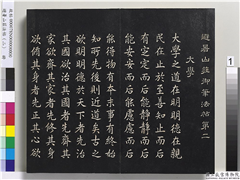 避暑山莊御筆法帖第二
大學
大學之道在明明德在親
民在止於至善知止而后
有定定而后能靜靜而后
能安安而后能慮慮而后
能得物有本末事有終始
知所先後則近道矣古之
欲明明德於天下者先治
其國欲治其國者先齊其
家欲齊其家者先脩其身
欲脩其身者先正其心欲
1